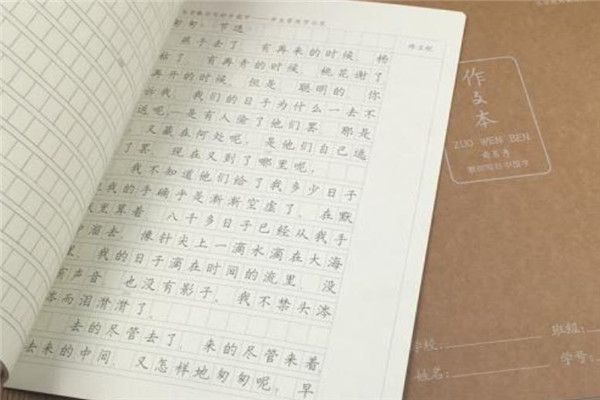 匆匆 节选
燕子去了 有再来的时候 杨
枯了 有再青的时候 桃花谢了
再开的时候 但是 聪明的 你
诉我 我们的日子为什么一去不
返呢 是有人偷了他们罢 那是
又藏在何处呢 是他们自己逃
了罢 现在又到了哪里呢
我不知道他们给了我多少日子
我的手确乎是渐渐空虚了 在默
里算着 八千多日子已经从我手
中溜去 像针尖上一滴水滴在大海
里 我的日子滴在时间的流里 没
有声音 也没有影子 我不禁头涔
涔而泪潸潸了
去的尽管去了 来的尽管来着
去来的中间 又怎样地匆匆呢 早
作文本
ZUO WEN BEN
学校:
班级:
姓名:
学号: